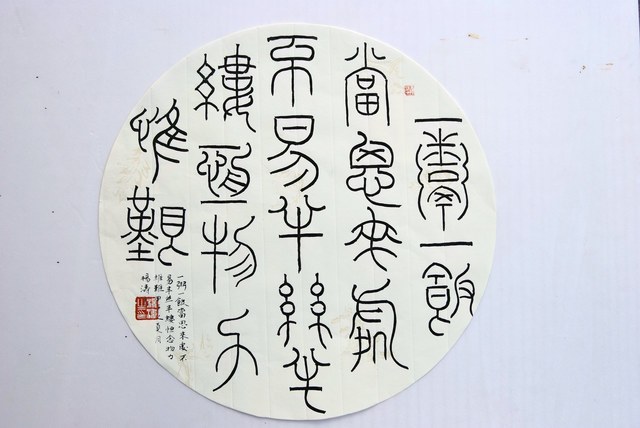 一粥一飯
當思來處
不易半絲半
縷恆物力
惟艱
一粥一飯當思來處不
易半絲半縷恒念物力
維艱 夏月
楊濤